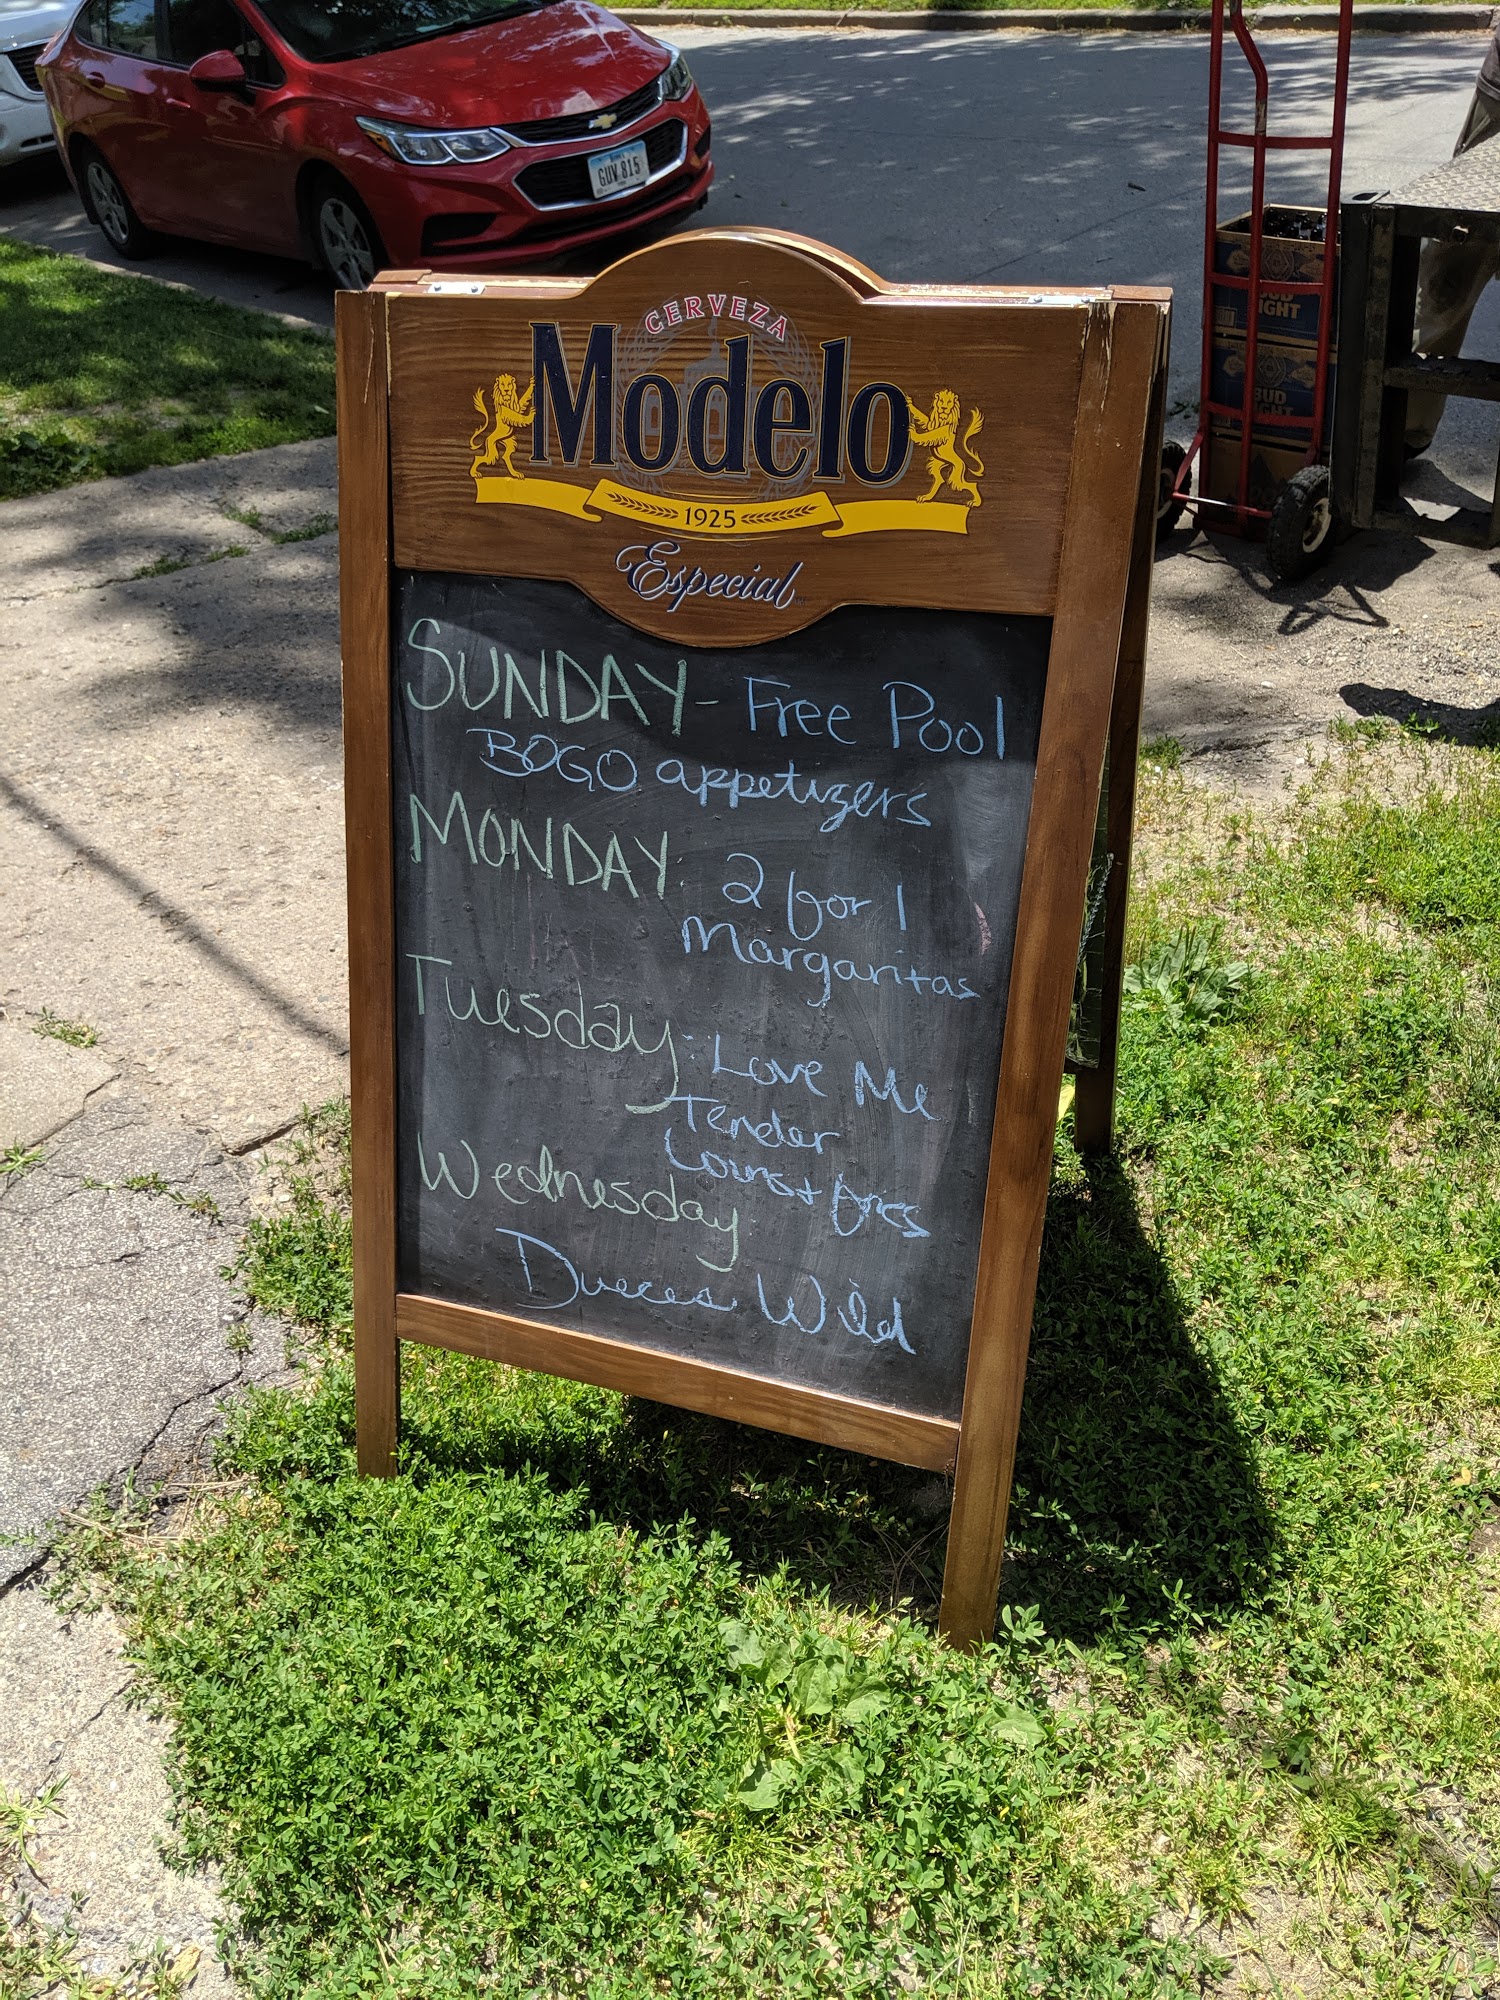 GUV 815
CERVEZA
Modelo
1925
Especial
SUNDAY - Free Pool
BOGO appetizers
MONDAY: 2 for 1
Margaritas
Tuesday: Love Me
Tender
Loins + fries
Wednesday
Dueces Wild
BUD
LIGHT
BUD
LIGHT